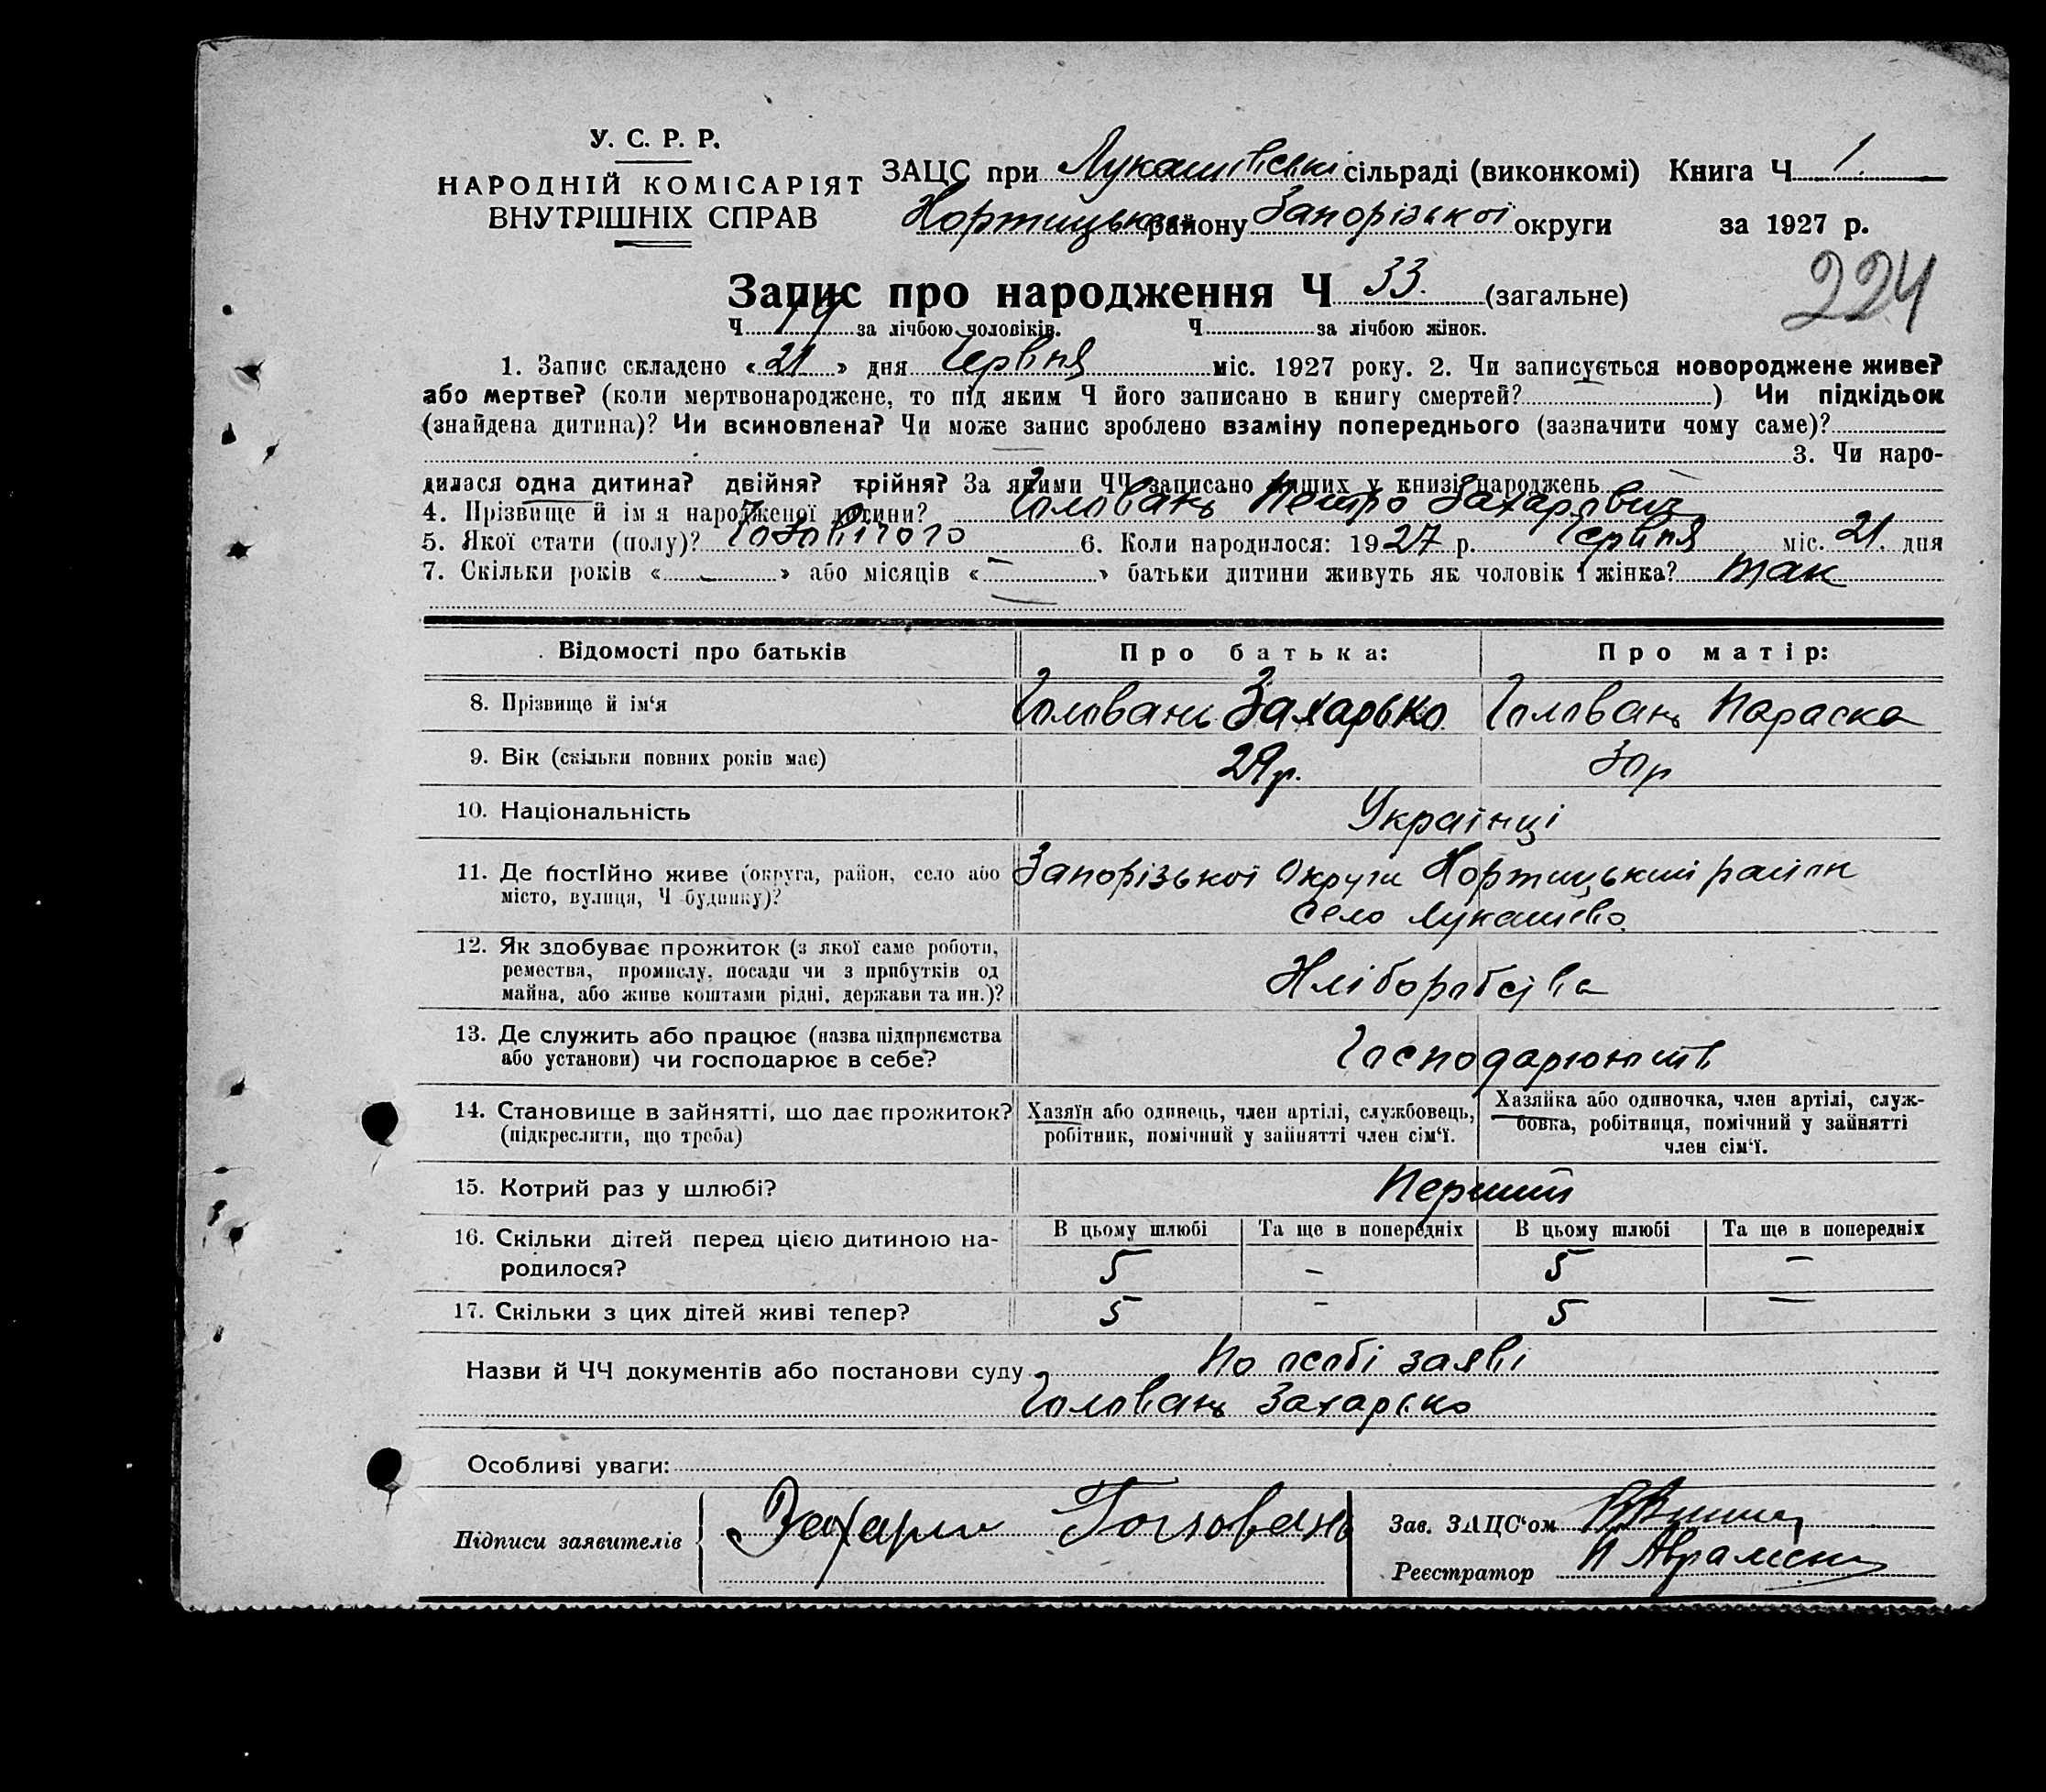 У. С. Р. Р.
НАРОДНІЙ КОМІСАРІЯТ
ВНУТРІШНІХ СПРАВ
ЗАЦС при Лукашівські сільраді (виконкомі) Книга Ч 1.
Хортицького району Запорізької округи за 1927 р.
224
Запис про народження Ч 33. (загальне)
Ч 19 за лічбою чоловіків. Ч за лічбою жінок.
1. Запис складено « 21 » дня Червня міс. 1927 року. 2. Чи записується новороджене живе?
або мертве? (коли мертвонароджене, то під яким Ч його записано в книгу смертей? ) Чи підкідьок
(знайдена дитина)? Чи всиновлена? Чи може запис зроблено взаміну попереднього (зазначити чому саме)?
3. Чи наро-
дилася одна дитина? двійня? трійня? За якими ЧЧ записано инших у книзі народжень
4. Прізвище й ім я народженої дитини? Головань Петро Захарович
5. Якої стати (полу)? Чоловічого 6. Коли народилося: 1927 р. Червня міс. 21. дня
7. Скільки років « - » або місяців « - » батьки дитини живуть як чоловік і жінка? так
Відомості про батьків Про батька: Про матір:
8. Прізвище й ім‘я Головань Захарько Головань Параска
9. Вік (скільки повних років має) 29 р. 30 р
10. Національність Українці
11. Де постійно живе (округа, район, село або Запорізької Округи Хортицький район
місто, вулиця, Ч будинку)? село Лукашево.
12. Як здобуває прожиток (з якої саме роботи,
ремества, промислу, посади чи з прибутків од Хліборобства
майна, або живе коштами рідні, держави та ин.)?
13. Де служить або працює (назва підприємства
або установи) чи господарює в себе? Господарюють
14. Становище в зайнятті, що дає прожиток? Хазяїн або одинець, член артілі, службовець, Хазяйка або одиночка, член артілі, служ-
(підкреслити, що треба) робітник, помічний у зайнятті член сім‘ї. бовка, робітниця, помічний у зайнятті
член сім‘ї.
15. Котрий раз у шлюбі? Перший
16. Скільки дітей перед цією дитиною на- В цьому шлюбі Та ще в попередніх В цьому шлюбі Та ще в попередніх
родилося? 5 - 5 -
17. Скільки з цих дітей живі тепер? 5 - 5 -
Назви й ЧЧ документів або постанови суду По особі заяві
Головань Захарько
Особливі уваги:
Підписи заявителів Захарии Головань Зав. ЗАЦС‘ом
Реєстратор